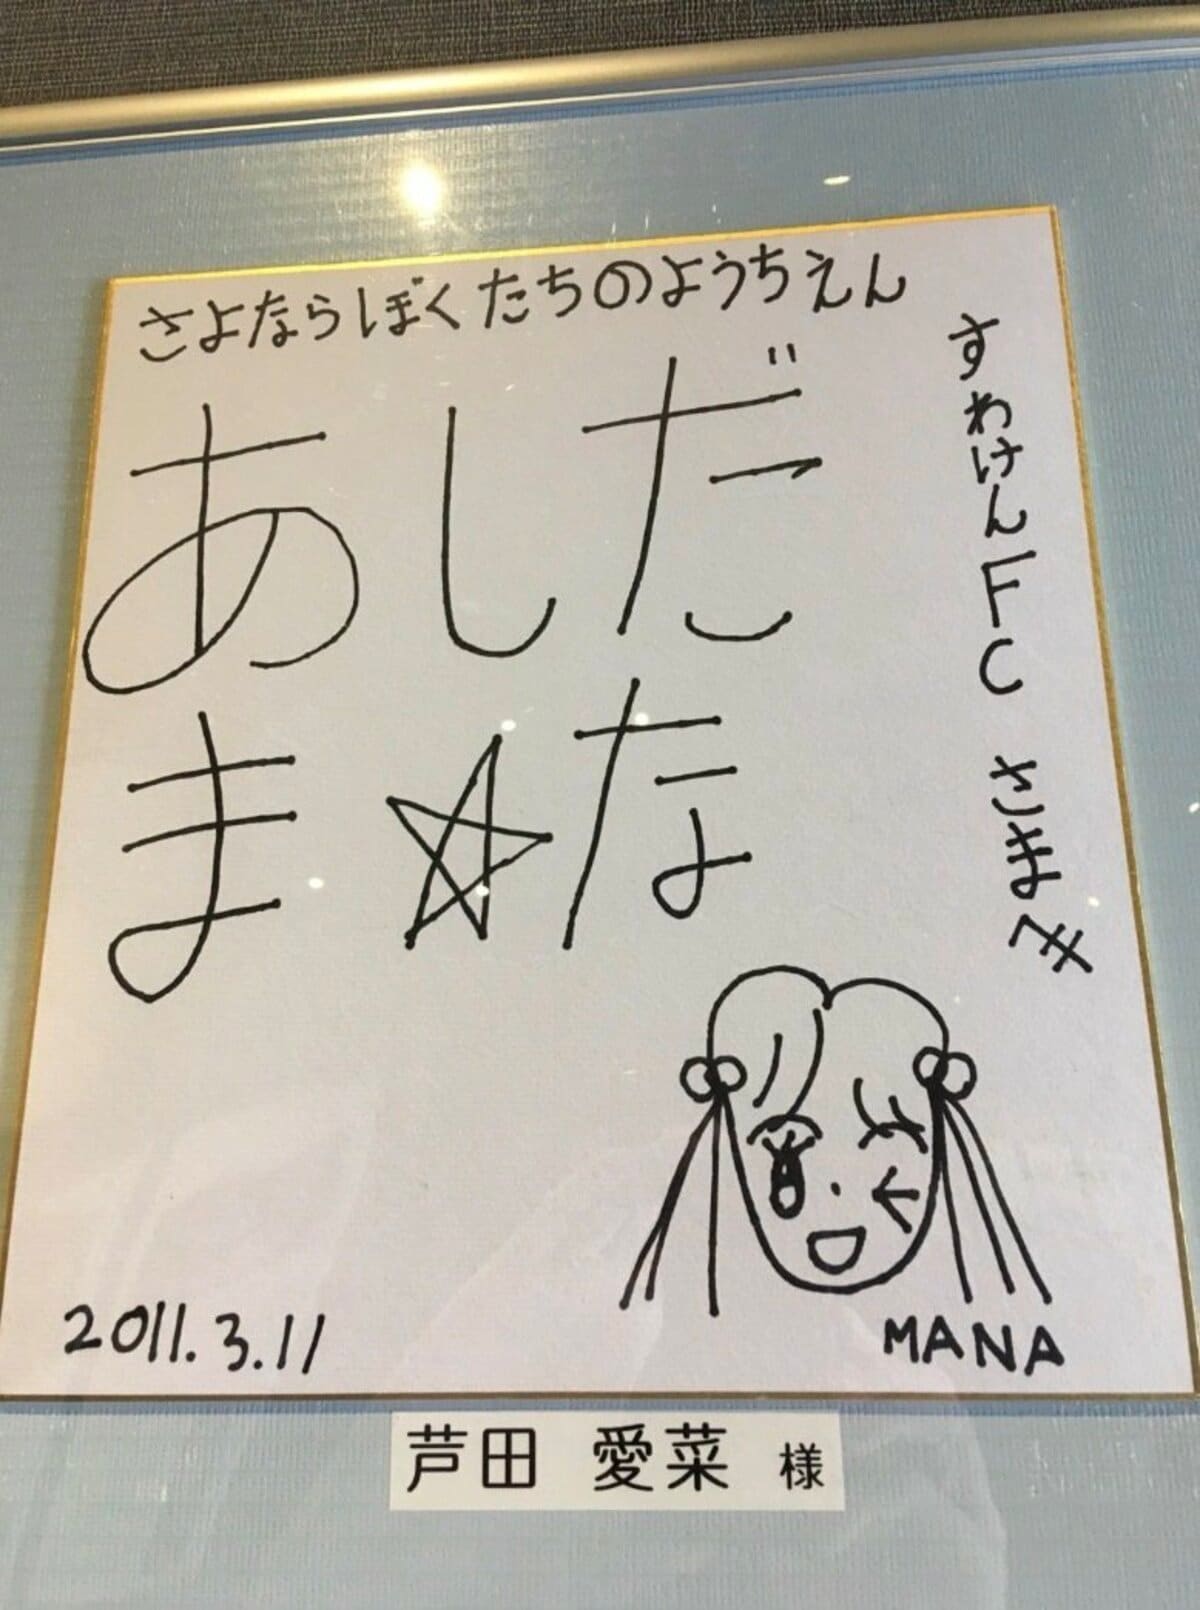 さよならぼくたちのようちえん
すわけんFC さまへ
あしだ
ま☆な
MANA
2011.3.11
芦田 愛菜 様